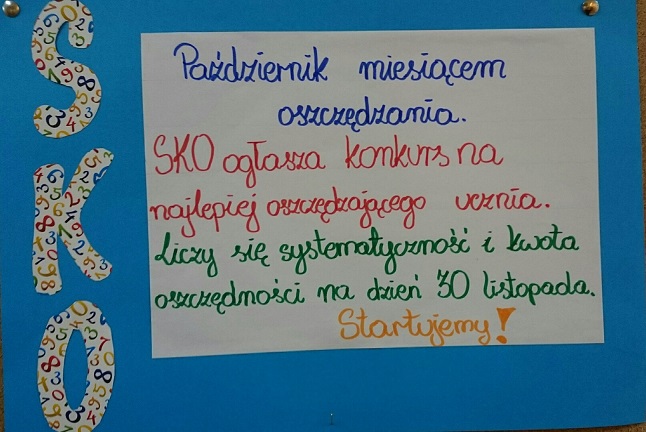 SKO
Październik miesiącem
oszczędzania.
SKO ogłasza konkurs na
najlepiej oszczędzającego ucznia.
Liczy się systematyczność i kwota
oszczędności na dzień 30 listopada.
Startujemy!